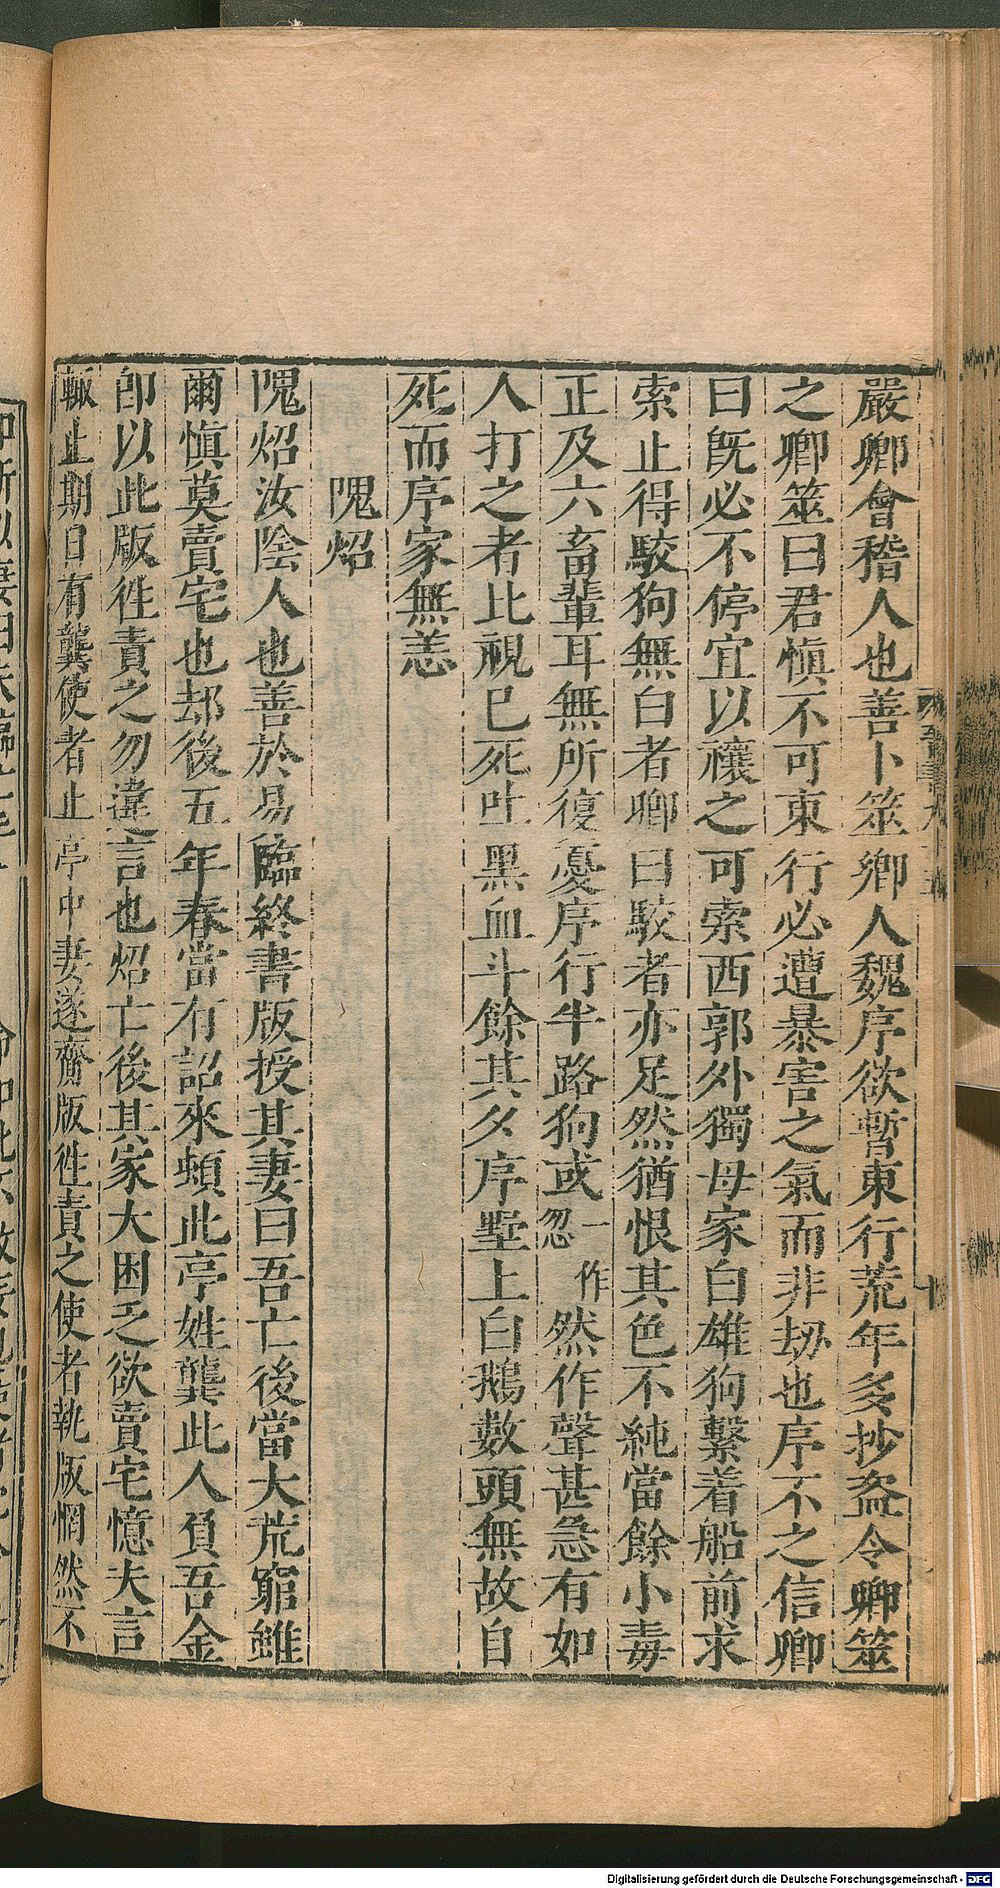 嚴卿會稽人也善卜筮鄉人魏序欲暫東行荒年多抄盜令卿筮
之卿筮曰君愼不可東行必遭暴害之氣而非劫也序不之信卿
曰旣必不停宜以禳之可索西郭外獨母家白雄狗繫着船前求
索止得駮狗無白者卿曰駮者亦足然猶恨其色不純當餘小毒
正及六畜輩耳無所復憂序行半路狗或一作忽然作聲甚急有如
人打之者比視已死吐黑血斗餘其夕序墅上白鵝數頭無故自
死而序家無恙
隗炤
隗炤汝陰人也善於易臨終書版授其妻曰吾亡後當大荒窮雖
爾愼莫賣宅也却後五年春當有詔來頓此亭姓龔此人負吾金
卽以此版徃責之勿違言也炤亡後其家大困乏欲賣宅憶夫言
輙止期日有龔使者止亭中妻遂齎版徃責之使者執版惘然不
Digitalisierung gefördert durch die Deutsche Forschungsgemeinschaft - DFG